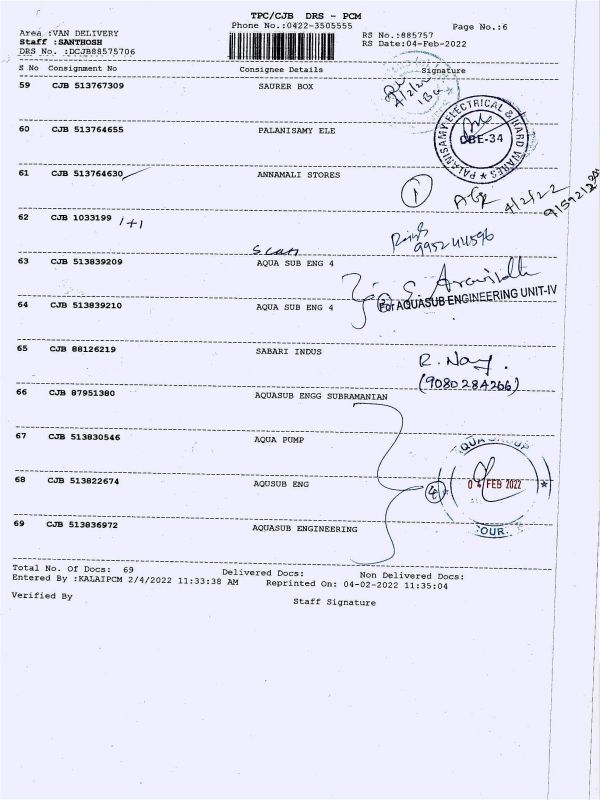 TPC/CJB DRS - PCM
Phone No.:0422-3505555
Page No.:6
Area :VAN DELIVERY
Staff :SANTHOSH
DRS No. :DCJB88575706
RS No.:885757
RS Date:04-Feb-2022
S No Consignment No Consignee Details Signature
59 CJB 513767309 SAURER BOX
4/2/22
60 CJB 513764655 PALANISAMY ELE
PALANISAMY ELECTRICAL & HARD WARES
CBE-34
61 CJB 513764630 ANNAMALI STORES
1
4/2/22
62 CJB 1033199 1+1
9952441596
Scan
63 CJB 513839209 AQUA SUB ENG 4
For AQUASUB ENGINEERING UNIT-IV
64 CJB 513839210 AQUA SUB ENG 4
65 CJB 88126219 SABARI INDUS
(9080284266)
66 CJB 87951380 AQUASUB ENGG SUBRAMANIAN
67 CJB 513830546 AQUA PUMP
AQUA GROUP
68 CJB 513822674 AQUSUB ENG
4
04 FEB 2022
69 CJB 513836972 AQUASUB ENGINEERING
OUR
Total No. Of Docs: 69 Delivered Docs: Non Delivered Docs:
Entered By :KALAIPCM 2/4/2022 11:33:38 AM Reprinted On: 04-02-2022 11:35:04
Verified By Staff Signature